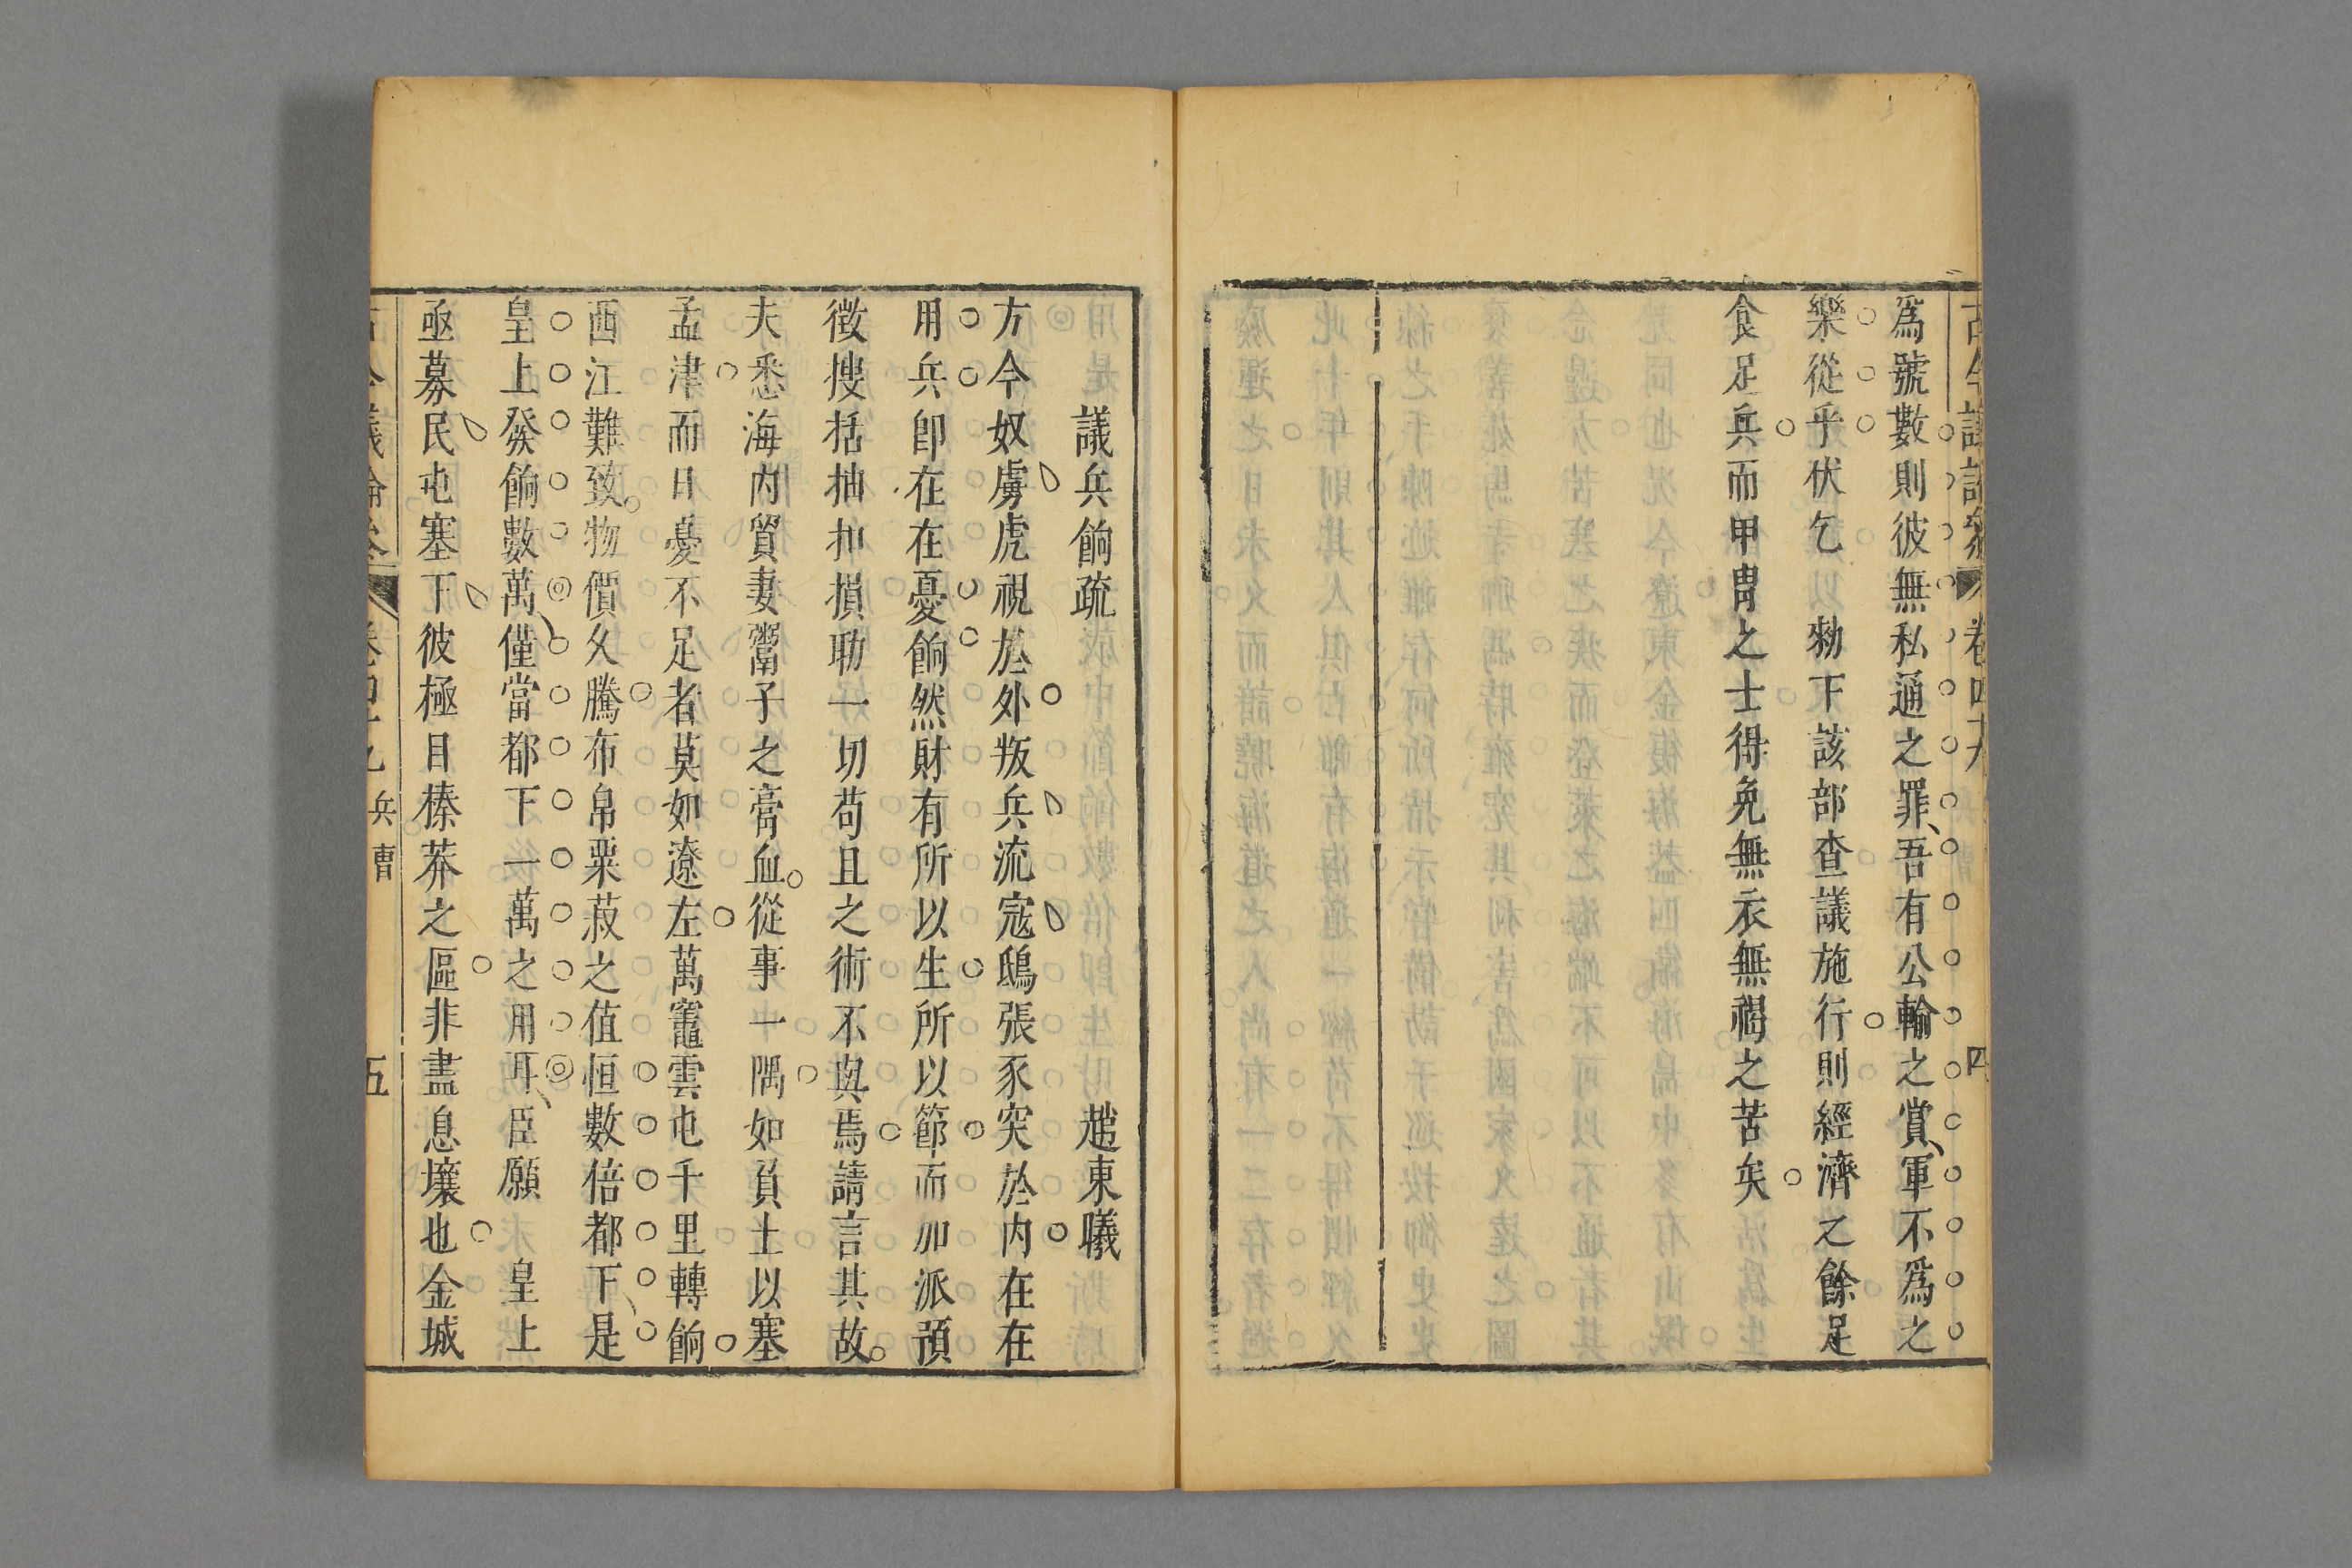 古今議論參 卷四十九 四
爲號數則彼無私通之罪吾有公輸之賞軍不爲之
樂從乎伏乞 勑下該部查議施行則經濟之餘足
食足兵而甲冑之士得免無衣無褐之苦矣
議兵餉疏 趙東曦
方今奴虜虎視於外叛兵流寇鴟張豕突於內在在
用兵卽在在憂餉然財有所以生所以節而加派預
徵搜括抽扣損助一切苟且之術不與焉請言其故
夫悉海內貿妻鬻子之膏血從事一隅如負土以塞
孟津而日憂不足者莫如遼左萬竈雲屯千里轉餉
西江難致物價久騰布帛粟菽之值恒數倍都下是
皇上發餉數萬僅當都下一萬之用耳臣願 皇上
亟募民屯塞下彼極目榛莽之區非盡息壤也金城
古今議論參 卷四十九 兵曹 五